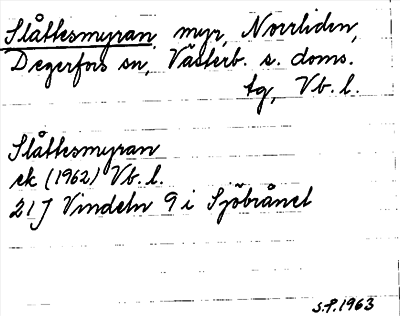 Slåttesmyran, myr, Norrliden,
Degerfors sn, Västerb. s. doms.
tg, Vb. l.
Slåttesmyran
ek (1962) Vb. l.
21J Vindeln 9 i Sjöbrånet
S.P. 1963